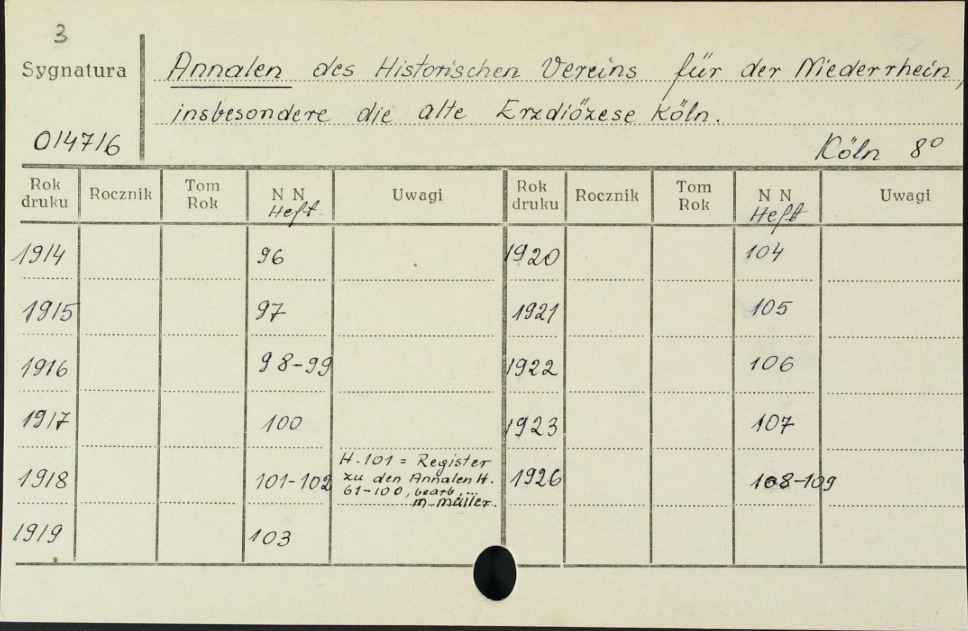 3
Sygnatura
Annalen des Historischen Vereins für der Niederrhein,
insbesondere die alte Erzdiözese Köln.
014716
Köln 8º
Rok druku Rocznik Tom Rok N N Heft Uwagi Rok druku Rocznik Tom Rok N N Heft Uwagi
1914 96 1920 104
1915 97 1921 105
1916 98-99 1922 106
1917 100 1923 107
1918 101-102 H. 101 = Register
zu den Annalen H.
61-100, bearb.
m. Müller.
1926 108-109
1919 103